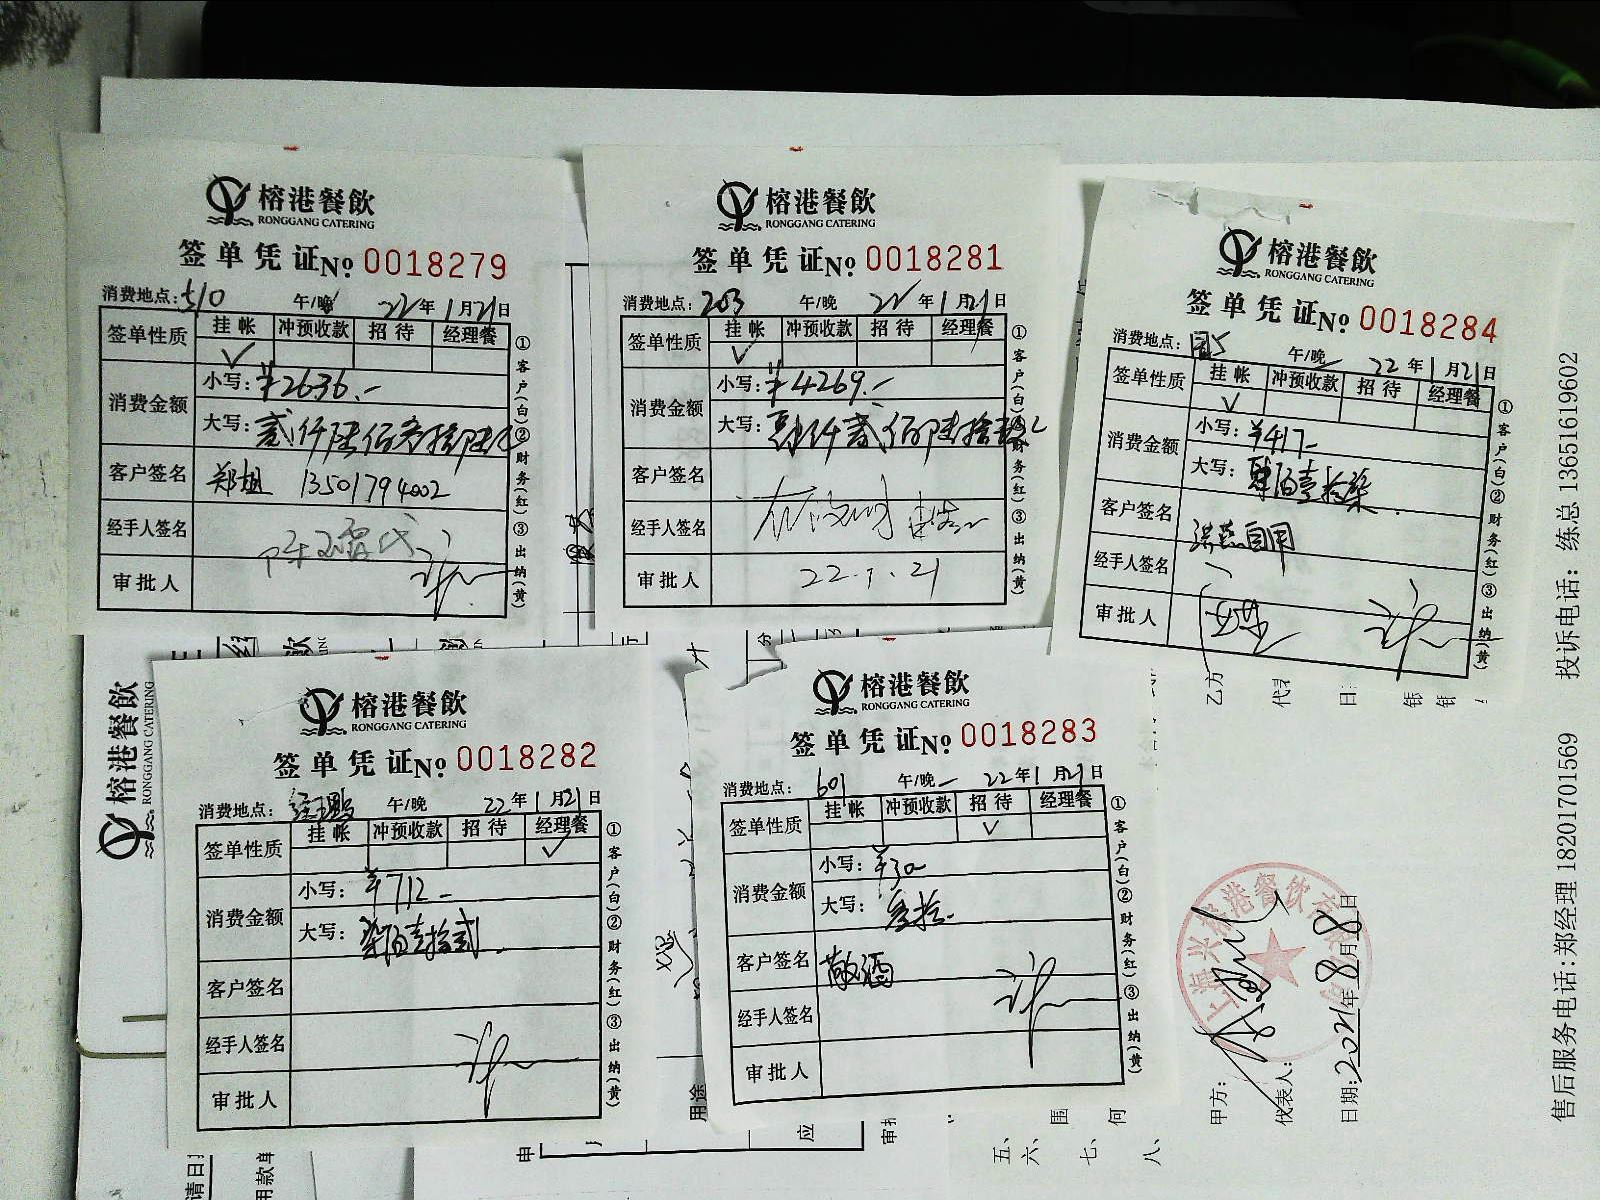 榕港餐飲
RONGGANG CATERING
签单凭证No 0018279
消费地点:510 午/晚 22年1月21日
签单性质 挂帐 冲预收款 招待 经理餐
✓
消费金额 小写:¥2636.-
大写:贰仟陆佰叁拾陆元
客户签名 郑姐 13501794002
经手人签名
审批人
①客户(白)②财务(红)③出纳(黄)
榕港餐飲
RONGGANG CATERING
签单凭证No 0018281
消费地点:203 午/晚 22年1月21日
签单性质 挂帐 冲预收款 招待 经理餐
✓
消费金额 小写:¥4269.-
大写:肆仟贰佰陆拾玖元
客户签名
经手人签名
审批人 22.1.21
①客户(白)②财务(红)③出纳(黄)
榕港餐飲
RONGGANG CATERING
签单凭证No 0018284
消费地点: 午/晚 22年1月21日
签单性质 挂帐 冲预收款 招待 经理餐
✓
消费金额 小写:¥417-
大写:肆佰壹拾柒
客户签名 自用
经手人签名
审批人
①客户(白)②财务(红)③出纳(黄)
榕港餐飲
RONGGANG CATERING
签单凭证No 0018282
消费地点: 午/晚 22年1月21日
签单性质 挂帐 冲预收款 招待 经理餐
✓
消费金额 小写:¥712-
大写:柒佰壹拾贰
客户签名
经手人签名
审批人
①客户(白)②财务(红)③出纳(黄)
榕港餐飲
RONGGANG CATERING
签单凭证No 0018283
消费地点:601 午/晚 22年1月21日
签单性质 挂帐 冲预收款 招待 经理餐
✓
消费金额 小写:¥30-
大写:叁拾
客户签名 敬酒
经手人签名
审批人
①客户(白)②财务(红)③出纳(黄)
榕港餐飲
RONGGANG CATERING
用途
甲方:
代表人:
日期:2021年8月8日
乙方
五、
六、
七、
八、
售后服务电话:郑经理 18201701569 投诉电话:练总 13651619602